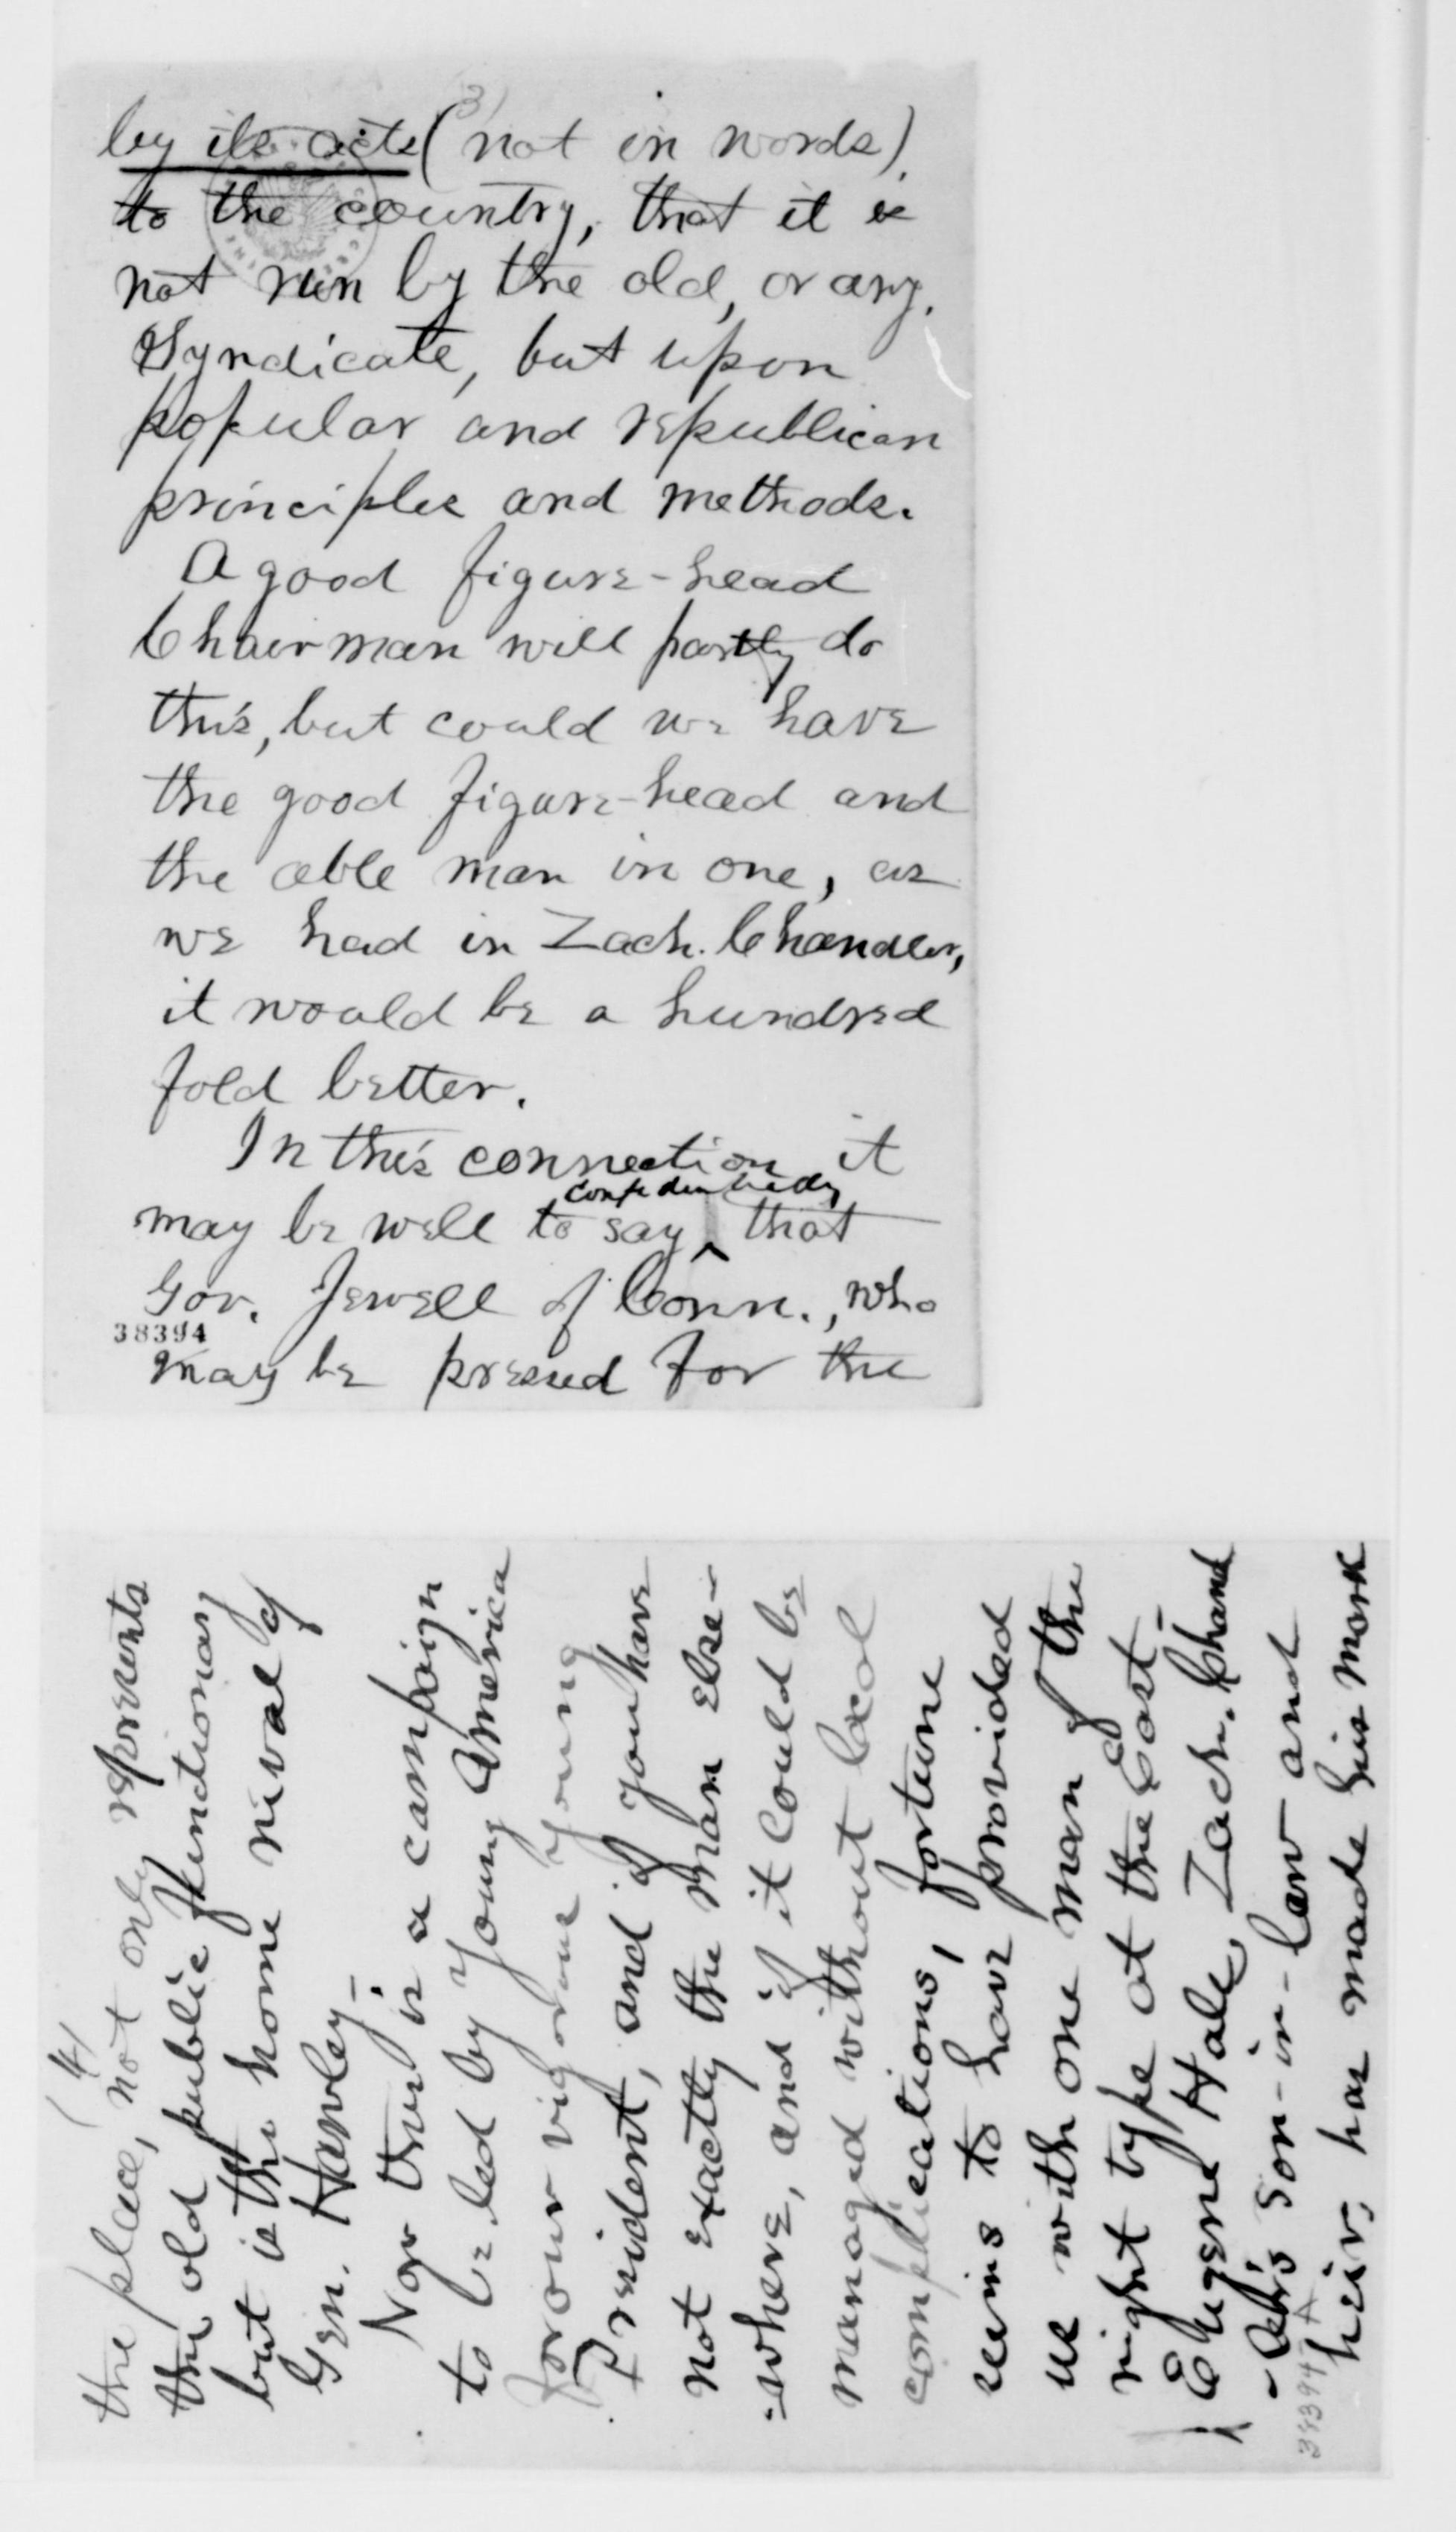 3)
by its acts (not in words)
to the country, that it is
not run by the old, or any,
Syndicate, but upon
popular and republican
principles and methods.
A good figure-head
Chairman will partly do
this, but could we have
the good figure-head and
the able man in one, as
we had in Zach. Chandler,
it would be a hundred
fold better.
In this connection it
confidentially
may be well to say ^ that
Gov. Jewell of Conn., who
38394
may be pressed for the
(4)
the place, not only represents
the old public functionary
but is the home rival of
Gen. Hawley—
Now this is a campaign
to be led by young America
your vigorous young
President, and if you have
not exactly the man else-
-where, and if it could be
managed without local
complications, fortune
seems to have provided
us with one man of the
right type at the East—
Eugene Hale, Zach. Chand
-ler's son-in-law and
38394 A
heir, has made his mark